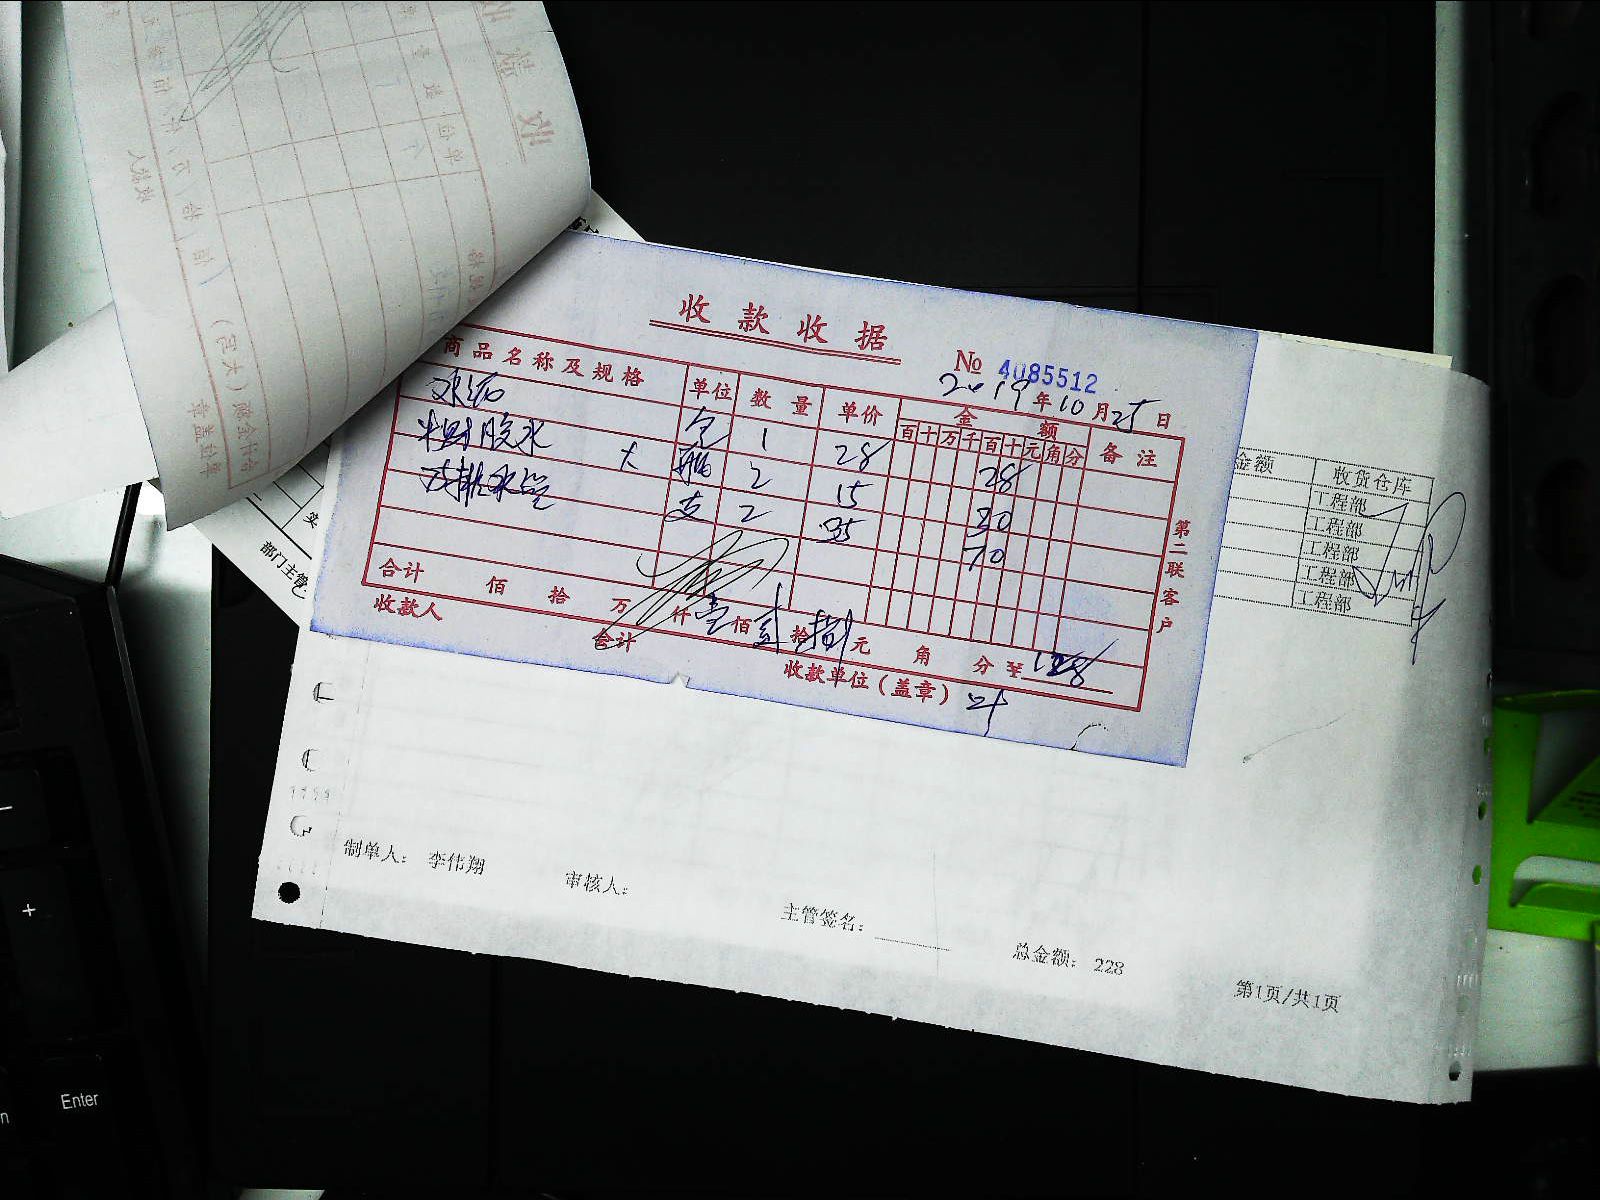 收款收据
№ 4085512
2019年10月25日
商品名称及规格 单位 数量 单价 金额 备注
百十万千百十元角分
水泥 包 1 28 28
胶水 大 瓶 2 15 30
排水管 支 2 35 70
合计 佰 拾 万 仟 壹佰 贰拾捌元 角 分 至 128
收款人 合计 收款单位(盖章) 叶
第二联客户
金额 收货仓库
工程部
工程部
工程部
工程部
工程部
部门主管
实
制单人: 李伟翔 审核人: 主管签名: 总金额: 228
第1页/共1页
+
Enter